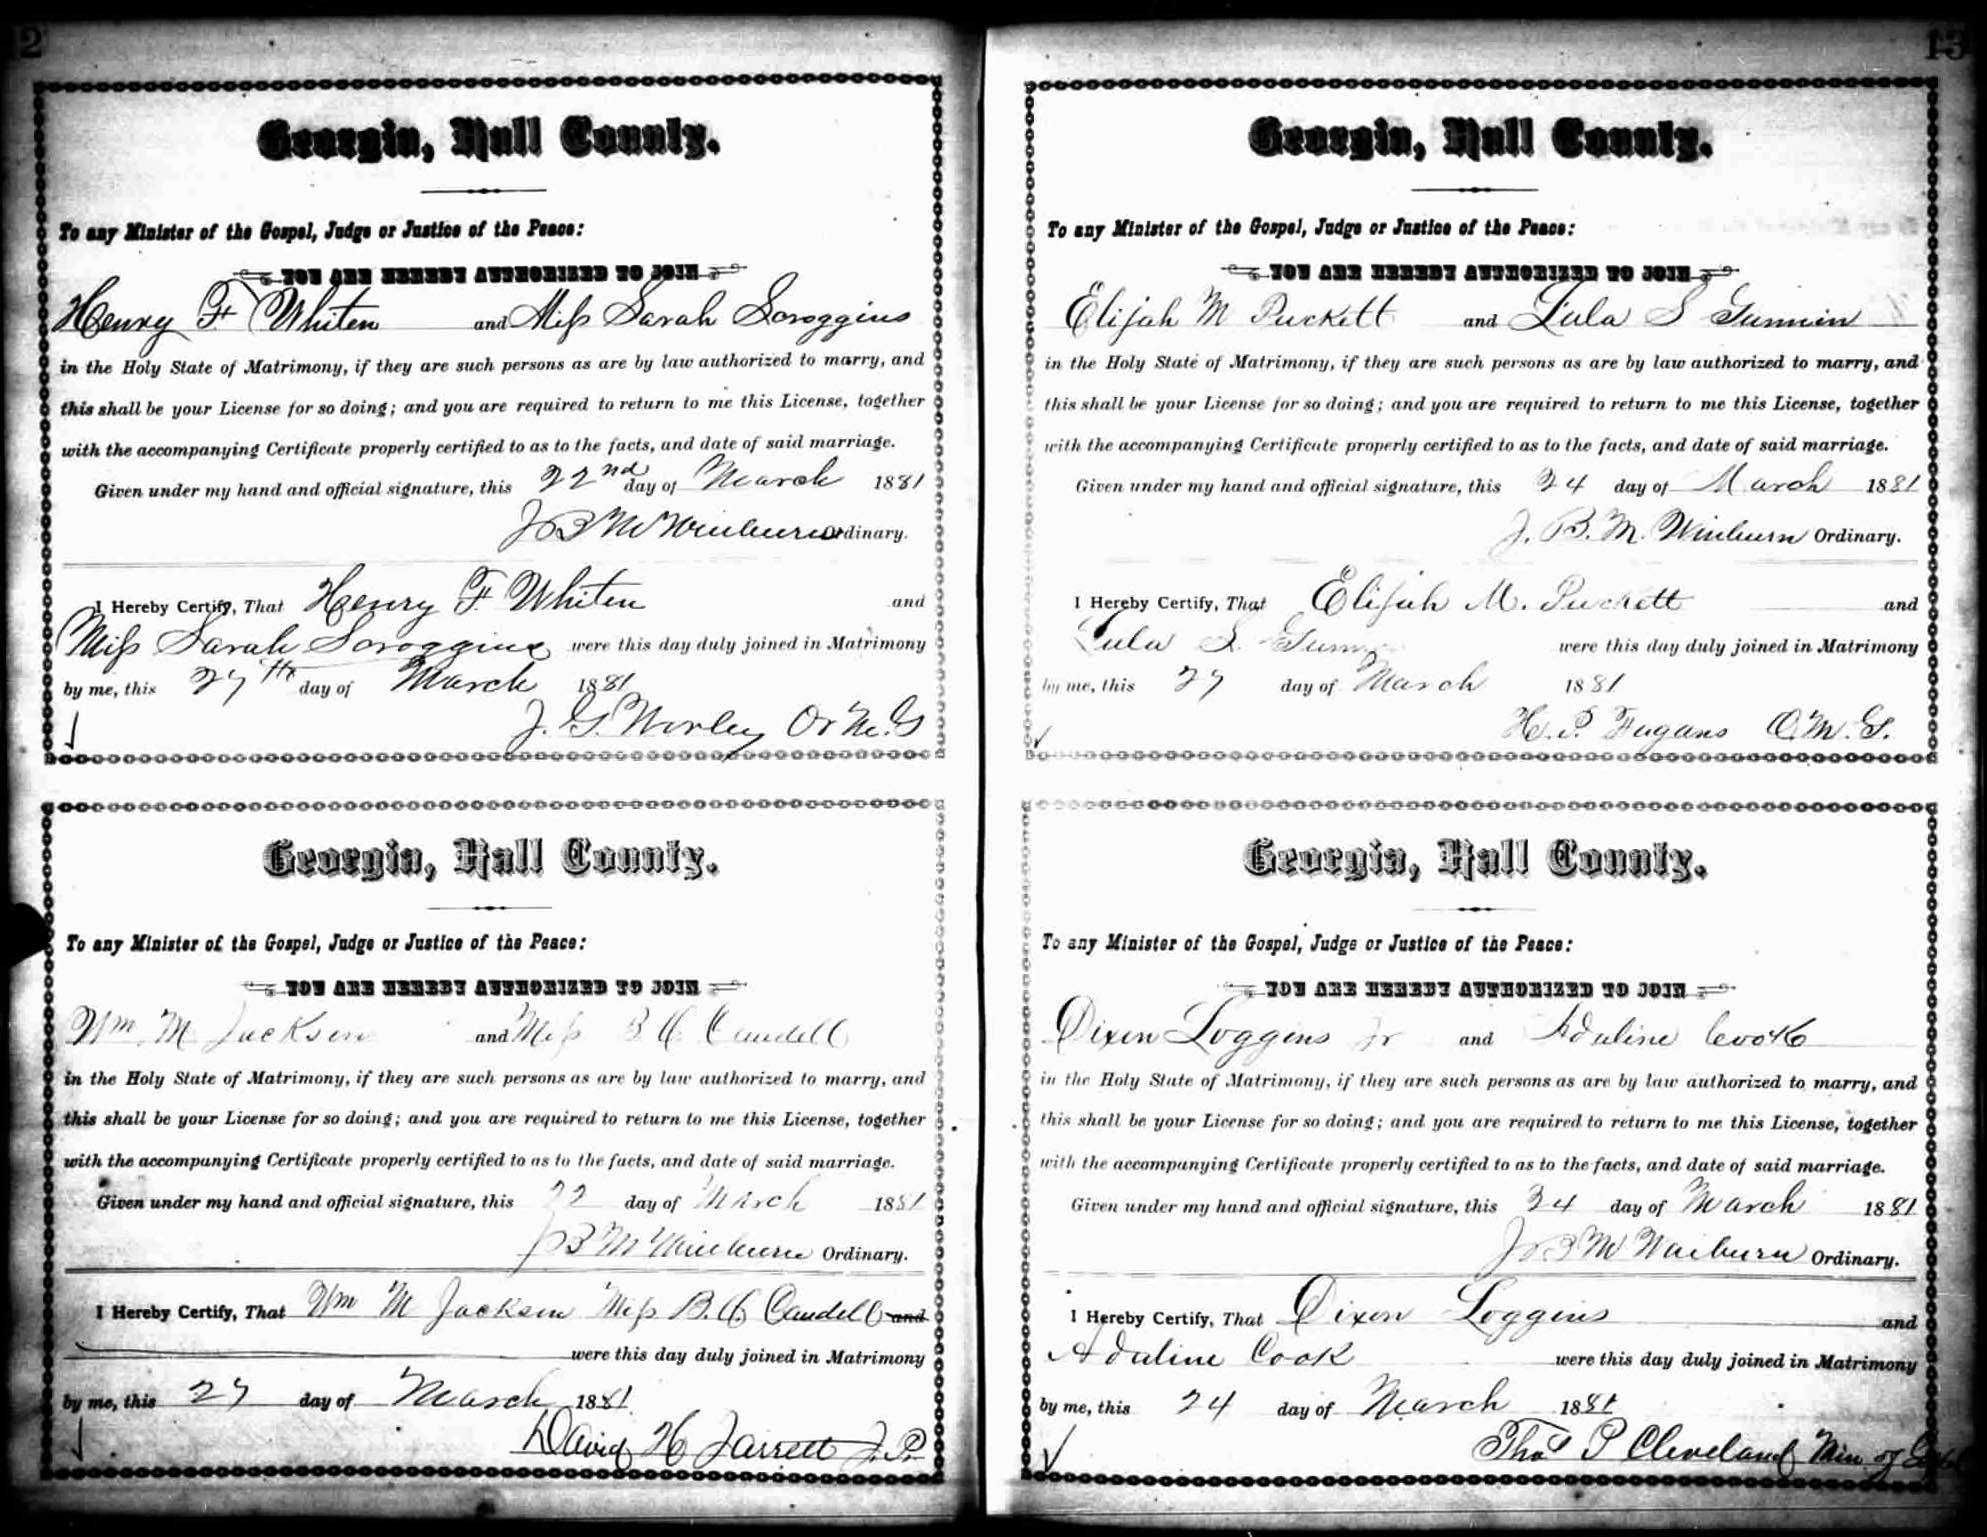 2
Georgia, Hall County.
To any Minister of the Gospel, Judge or Justice of the Peace:
YOU ARE HEREBY AUTHORIZED TO JOIN
Henry F Whiten and Miss Sarah Scroggins
in the Holy State of Matrimony, if they are such persons as are by law authorized to marry, and
this shall be your License for so doing; and you are required to return to me this License, together
with the accompanying Certificate properly certified to as to the facts, and date of said marriage.
Given under my hand and official signature, this 22nd day of March 1881
J B M Winburn Ordinary.
I Hereby Certify, That Henry F. Whiten and
Miss Sarah Scroggins were this day duly joined in Matrimony
by me, this 27th day of March 1881
J. G. Worley Or M. G
Georgia, Hall County.
To any Minister of the Gospel, Judge or Justice of the Peace:
YOU ARE HEREBY AUTHORIZED TO JOIN
Wm. M Jackson and Miss B C Caudell
in the Holy State of Matrimony, if they are such persons as are by law authorized to marry, and
this shall be your License for so doing; and you are required to return to me this License, together
with the accompanying Certificate properly certified to as to the facts, and date of said marriage.
Given under my hand and official signature, this 22 day of March 1881
J B M Winburn Ordinary.
I Hereby Certify, That Wm M Jackson Miss B. C. Caudell and
were this day duly joined in Matrimony
by me, this 27 day of March 1881.
David H Jarrett J. P.
13
Georgia, Hall County.
To any Minister of the Gospel, Judge or Justice of the Peace:
YOU ARE HEREBY AUTHORIZED TO JOIN
Elijah M Puckett and Lula S Gunnin
in the Holy State of Matrimony, if they are such persons as are by law authorized to marry, and
this shall be your License for so doing; and you are required to return to me this License, together
with the accompanying Certificate properly certified to as to the facts, and date of said marriage.
Given under my hand and official signature, this 24 day of March 1881
J. B. M. Winburn Ordinary.
I Hereby Certify, That Elijah M. Puckett and
Lula S. were this day duly joined in Matrimony
by me, this 27 day of March 1881
H. P. Fugans O. M. G.
Georgia, Hall County.
To any Minister of the Gospel, Judge or Justice of the Peace:
YOU ARE HEREBY AUTHORIZED TO JOIN
Dixon Loggins Jr and Adaline Cook
in the Holy State of Matrimony, if they are such persons as are by law authorized to marry, and
this shall be your License for so doing; and you are required to return to me this License, together
with the accompanying Certificate properly certified to as to the facts, and date of said marriage.
Given under my hand and official signature, this 24 day of March 1881
J B M Winburn Ordinary.
I Hereby Certify, That Dixon Loggins and
Adaline Cook were this day duly joined in Matrimony
by me, this 24 day of March 1881
Thos P Cleveland Min of